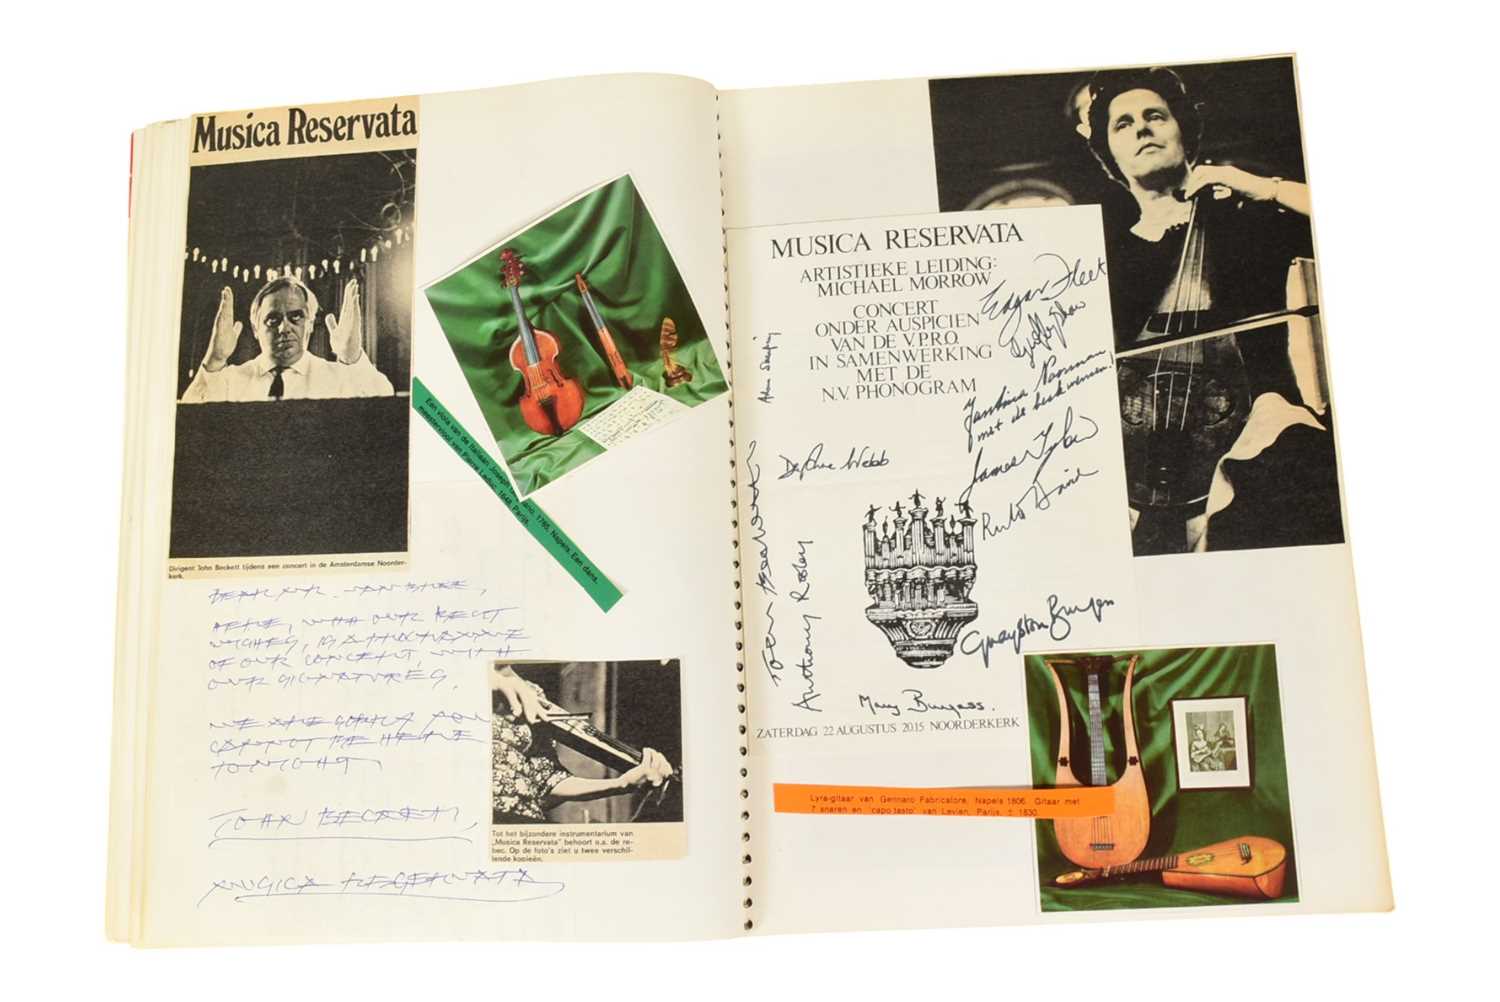 Musica Reservata
Dirigent John Beckett tijdens een concert in de Amsterdamse Noorder-
kerk.
Een viola van de Italiaan Joseph G ano, 1785, Napels. Een dans-
meesterviool van Pierre Leduc, 1648, Parijs.
WITH OUR BEST
WISHES,
OF OUR CONCERT, WITH
OUR SIGNATURES.
WE ARE SORRY YOU
CANNOT BE HERE
TONIGHT
JOHN BECKETT,
MUSICA RESERVATA
Tot het bijzondere instrumentarium van
„Musica Reservata" behoort o.a. de re-
bec. Op de foto's ziet u twee verschil-
lende kopieën.
MUSICA RESERVATA
ARTISTIEKE LEIDING:
MICHAEL MORROW
CONCERT
ONDER AUSPICIEN
VAN DE V.P.R.O.
IN SAMENWERKING
MET DE
N.V. PHONOGRAM
Edgar Fleet
Jantina Noorman
met de beste wensen!
James Tyler
Ruth David
Daphne Webb
John Beckett
Anthony Rooley
Grayston Burgess
Mary Burgess.
ZATERDAG 22 AUGUSTUS 20.15 NOORDERKERK
Lyra-gitaar van Gennaro Fabricatore, Napels 1806. Gitaar met
7 snaren en 'capo tasto' van Levien, Parijs, ± 1830